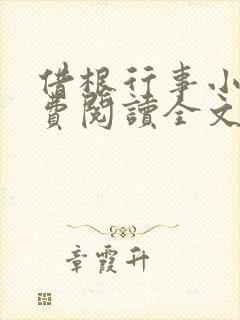 借根行事小
費閱讀全文
章霞升